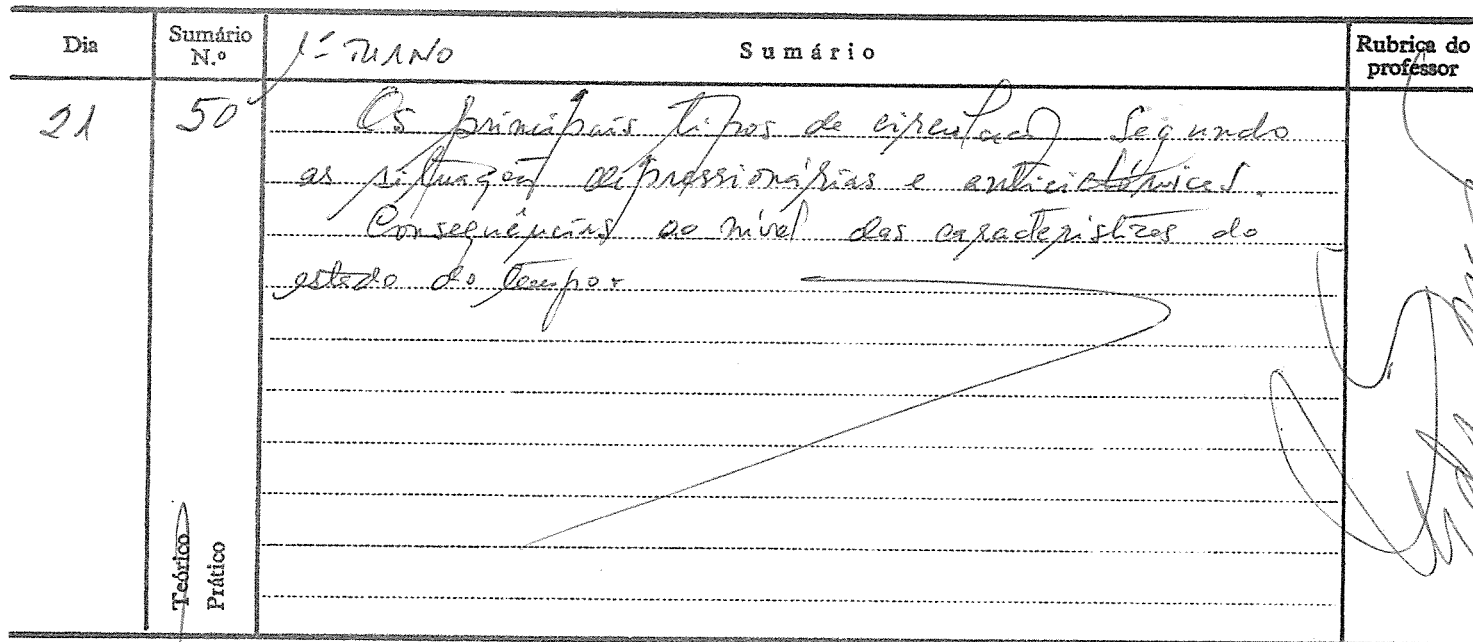 Dia
Sumário N.º
1º TURNO
Sumário
Rubrica do professor
21
50
Os principais tipos de circulação segundo
as situações depressionárias e anticiclónicas.
Consequências ao nível das características do
estado do tempo.
Teórico
Prático